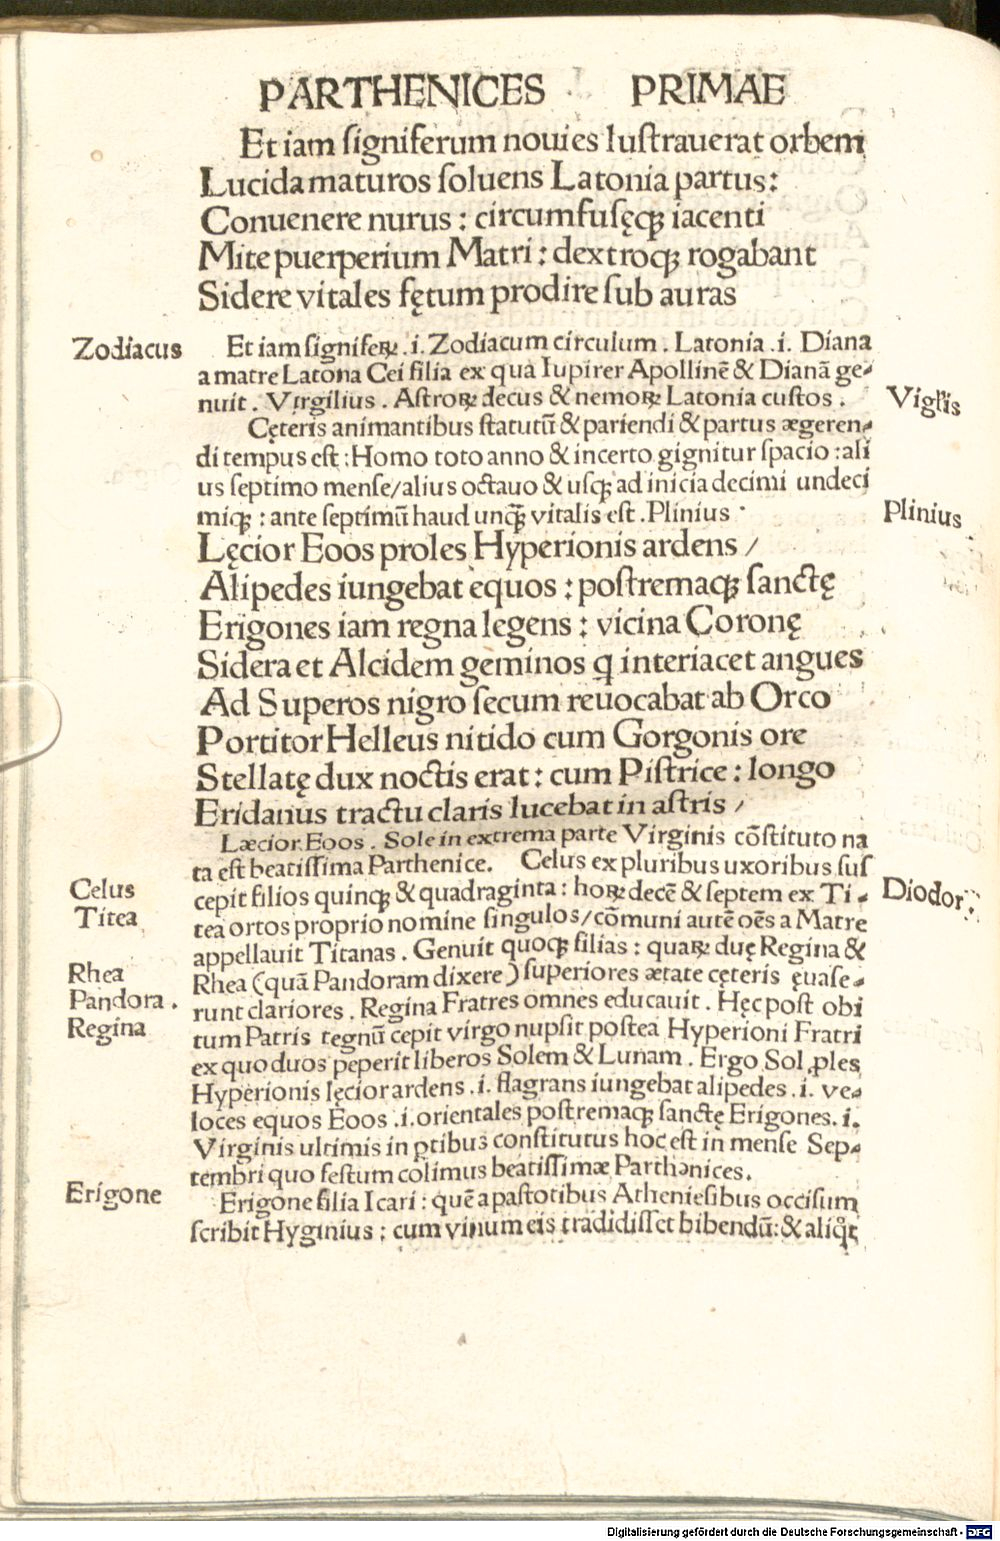 PARTHENICES PRIMAE
Et iam ſigniferum nouies luſtrauerat orbem
Lucida maturos ſoluens Latonia partus:
Conuenere nurus: circumfuſęꝗ iacenti
Mite puerperium Matri: dextroꝗ rogabant
Sidere vitales fętum prodire ſub auras
Zodiacus
Et iam ſignifeꝝ .i. Zodiacum circulum. Latonia .i. Diana
a matre Latona Cei filia ex qua Iupirer Apollinē & Dianā ge⸗
nuit. Virgilius. Aſtroꝝ decus & nemoꝝ Latonia cuſtos.
Virgłis
Cęteris animantibus ſtatutū & pariendi & partus ægeren⸗
di tempus eſt: Homo toto anno & incerto gignitur ſpacio: ali
us ſeptimo menſe/alius octauo & uſꝗ ad inicia decimi undeci
miꝗ: ante ſeptimū haud unꝗ̄ vitalis eſt. Plinius.
Plinius
Lęcior Eoos proles Hyperionis ardens /
Alipedes iungebat equos: poſtremaꝗ ſanctę
Erigones iam regna legens: vicina Coronę
Sidera et Alcidem geminos q interiacet angues
Ad Superos nigro ſecum reuocabat ab Orco
Portitor Helleus nitido cum Gorgonis ore
Stellatę dux noctis erat: cum Piſtrice: longo
Eridanus tractu claris lucebat in aſtris /
Læcior. Eoos. Sole in extrema parte Virginis cōſtituto na
ta eſt beatiſſima Parthenice. Celus ex pluribus uxoribus ſuſ
Celus
cepit filios quinꝗ & quadraginta: hoꝝ decē & ſeptem ex Ti⸗
Diodor,
Titea
tea ortos proprio nomine ſingulos/cōmuni autē oēs a Matre
appellauit Titanas. Genuit quoꝗ filias: quaꝝ duę Regina &
Rhea
Rhea (quā Pandoram dixere) ſuperiores ætate cęteris ęuaſe⸗
Pandora.
runt clariores. Regina Fratres omnes educauit. Hęc poſt obi
Regina
tum Patris regnū cepit virgo nupſit poſtea Hyperioni Fratri
ex quo duos peperit liberos Solem & Lunam. Ergo Sol ꝓles
Hyperionis lęcior ardens .i. flagrans iungebat alipedes .i. ve⸗
loces equos Eoos .i. orientales poſtremaꝗ ſanctę Erigones. i.
Virginis ultimis in ꝑtibus conſtitutus hoc eſt in menſe Sep⸗
tembri quo feſtum colimus beatiſſimæ Parthenices.
Erigone
Erigone filia Icari: quē a paſtoribus Athenieſibus occiſum
ſcribit Hyginius: cum vinum eis tradidiſſet bibendū: & aliꝗͥ